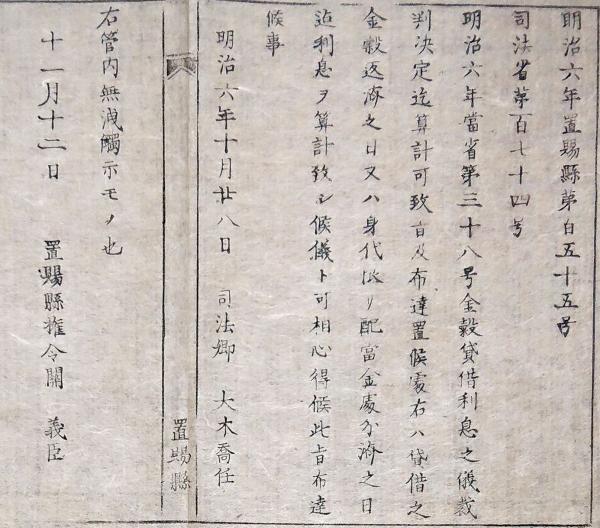 明治六年置賜縣第百五十五号
司法省第百七十四号
明治六年當省第三十八号金穀貸借利息之儀裁
判決定迄算計可致旨及布達置候處右ハ貸借之
金穀返済之日又ハ身代限リ配當金處分済之日
迄利息ヲ算計致シ候儀ト可相心得候此旨布達
候事
明治六年十月廿八日 司法卿 大木喬任
置賜縣
右管内無洩觸示モノ也
十一月十二日 置賜縣権令關 義臣